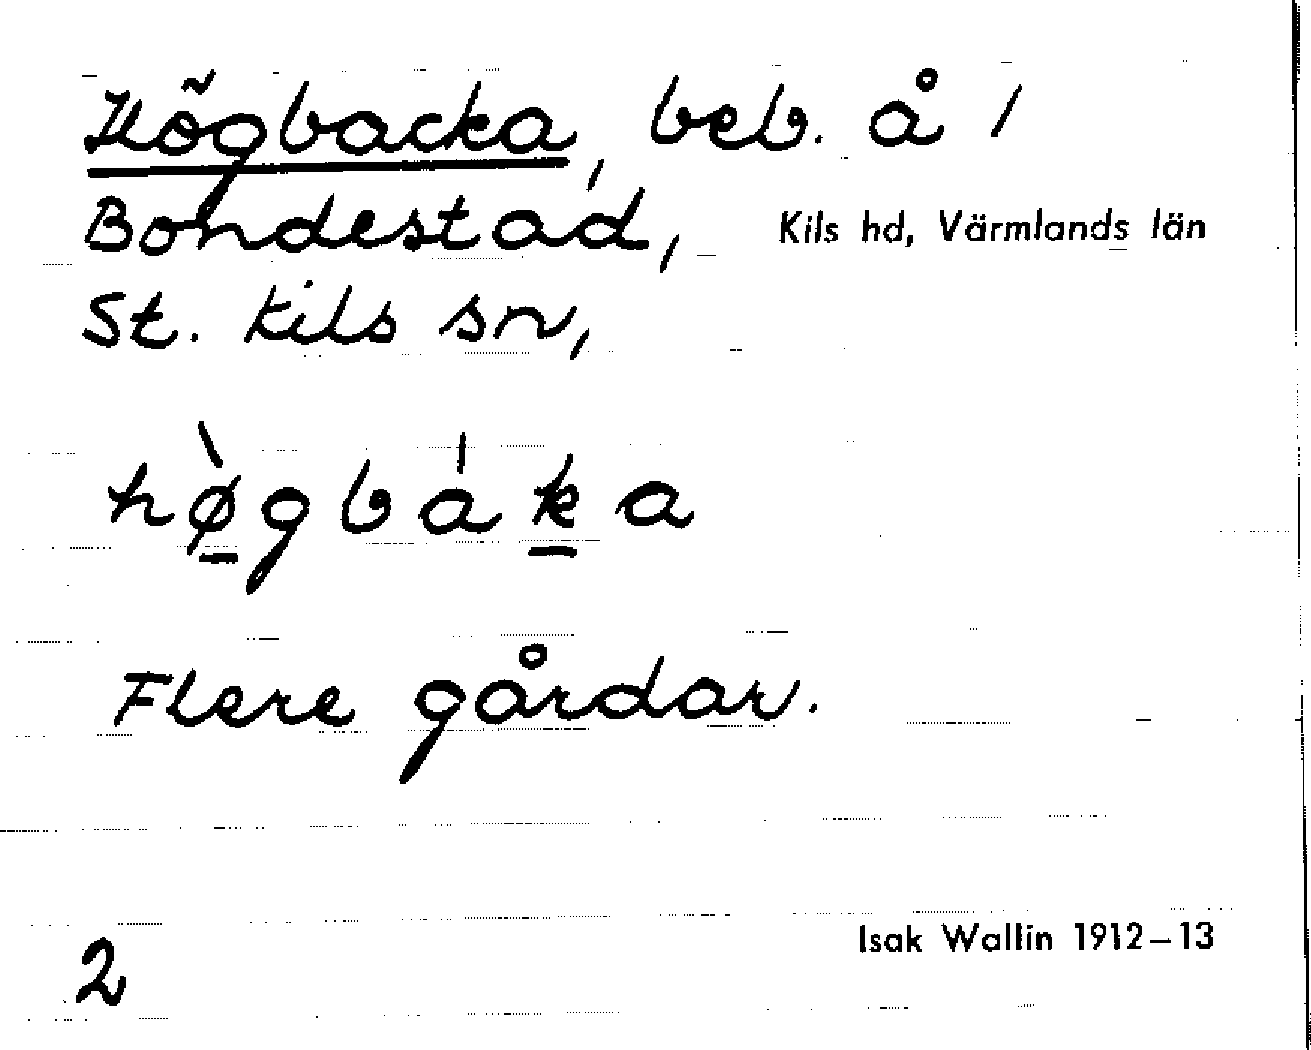 Högbacka, beb. å /
Bondestad, Kils hd, Värmlands län
St. Kils sn,
hø̲̀gbák̲a
Flere gårdar.
Isak Wallin 1912–13
2